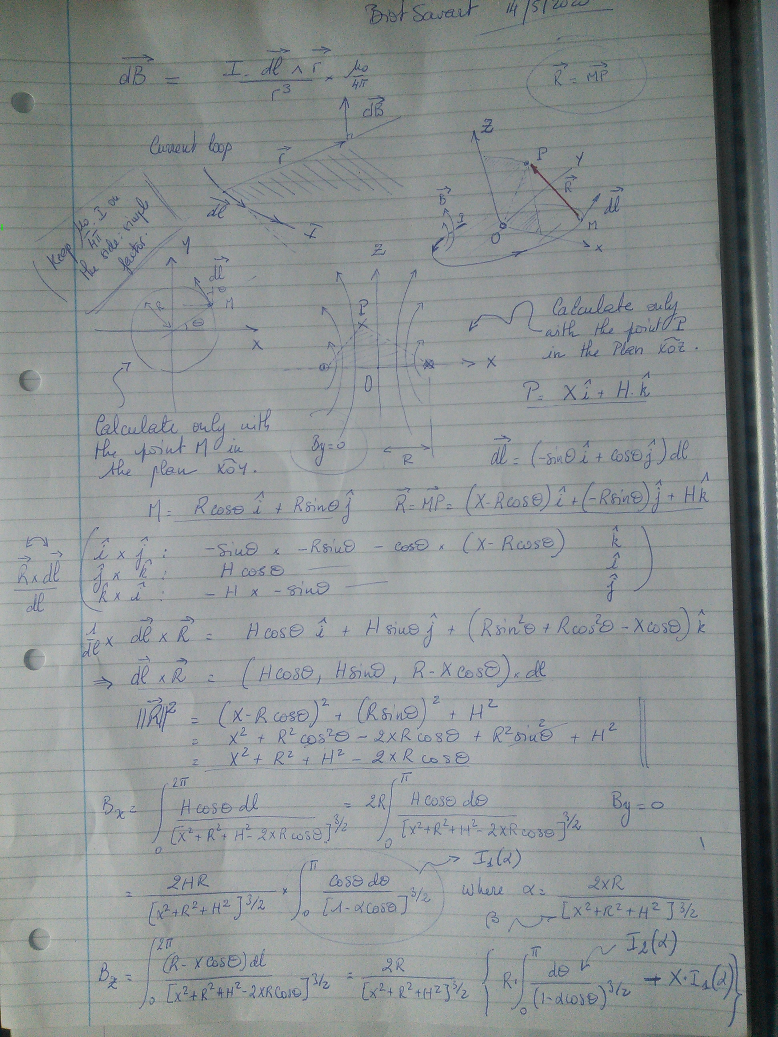 Biot Savart 14/5/20
dB = I. dl ∧ r / r³ × μ₀/4π
R = MP
dB
Current loop
r
dl
I
Z
P
Y
R
dl
M
B
I
O
X
(Keep μ₀/4π . I on
the side: simple
factor.)
Y
dl
θ
M
R
θ
X
Z
P
X
O
R
By=0
Calculate only
with the point P
in the Plan xoz.
P = X i + H.k
Calculate only with
the point M in
the plan xoy.
dl = (-sinθ i + cosθ j) dl
M = Rcosθ i + Rsinθ j
R = MP = (X-Rcosθ) i + (-Rsinθ) j + H k
R x dl / dl
i x j : -sinθ x -Rsinθ - cosθ x (X-Rcosθ) k
j x k : H cosθ i
k x i : -H x -sinθ j
1/dl x dl x R = H cosθ i + H sinθ j + (Rsin²θ + Rcos²θ - Xcosθ) k
⇒ dl x R = (Hcosθ, Hsinθ, R-Xcosθ) x dl
||R||² = (X-Rcosθ)² + (Rsinθ)² + H²
= X² + R²cos²θ - 2XRcosθ + R²sin²θ + H²
= X² + R² + H² - 2XR cosθ
Bx = ∫₀^2π Hcosθ dl / [X²+R²+H²-2XRcosθ]^3/2 = 2R ∫₀^π Hcosθ dθ / [X²+R²+H²-2XRcosθ]^3/2 By=0
= 2HR / [X²+R²+H²]^3/2 x ∫₀^π cosθ dθ / [1-αcosθ]^3/2 → I₁(α) where α = 2XR / [X²+R²+H²]^3/2
β
Bz = ∫₀^2π (R-Xcosθ) dl / [X²+R²+H²-2XRcosθ]^3/2 = 2R / [X²+R²+H²]^3/2 { R. ∫₀^π dθ / (1-αcosθ)^3/2 - X.I₁(α) }
I₂(α)